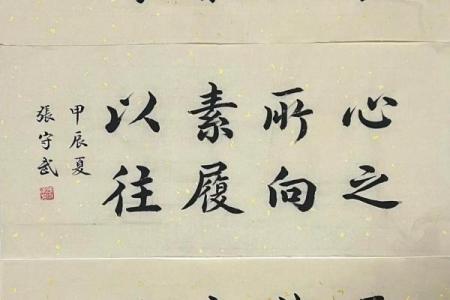 心之
所向
素履
以往
甲辰夏
張守武